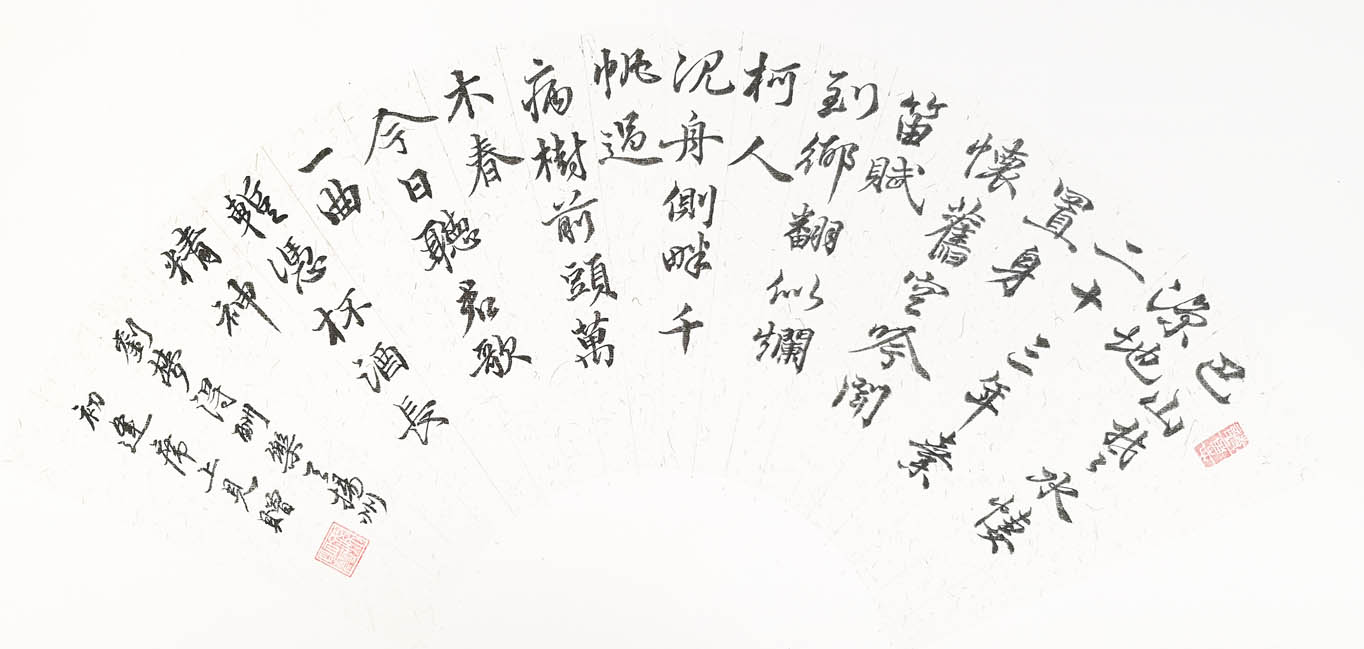 巴山楚水悽
涼地
二十三年棄
置身
懷舊空吟聞
笛賦
到鄉翻似爛
柯人
沈舟側畔千
帆過
病樹前頭萬
木春
今日聽君歌
一曲
暫憑杯酒長
精神
劉夢得酬樂天揚州
初逢席上見贈